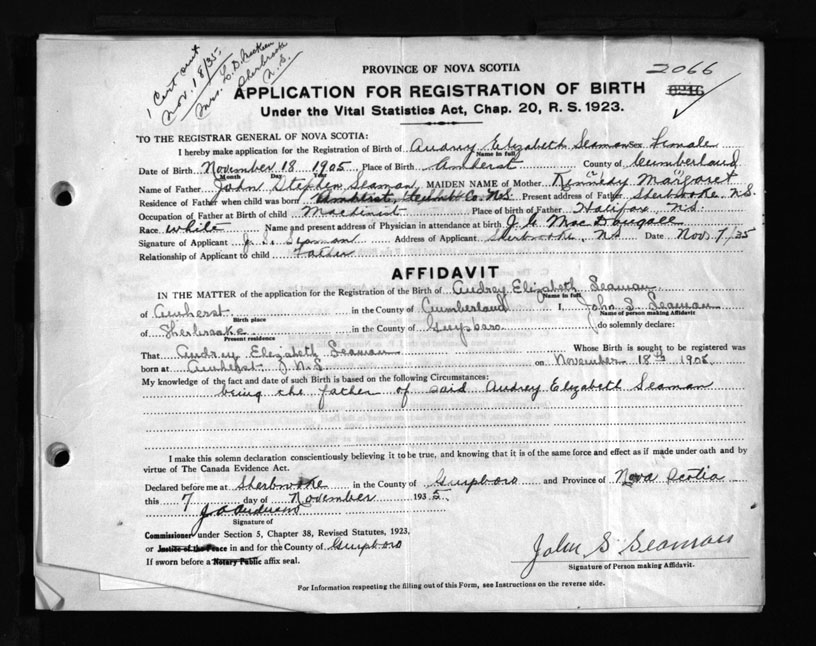 1 Cert out
Nov. 18/35
Mrs.
Sherbrooke
N.S.
PROVINCE OF NOVA SCOTIA
2066
APPLICATION FOR REGISTRATION OF BIRTH
Under the Vital Statistics Act, Chap. 20, R. S. 1923.
TO THE REGISTRAR GENERAL OF NOVA SCOTIA:
I hereby make application for the Registration of Birth of Audrey Elizabeth Seaman Sex Female
Name in full
Date of Birth November 18 1905 Place of Birth Amherst County of Cumberland
Month Day Year
Name of Father John Stephen Seaman, MAIDEN NAME of Mother Kennedy Margaret
Residence of Father when child was born Amherst, Cumb. Co. N.S. Present address of Father Sherbrooke, N.S.
Occupation of Father at Birth of child Machinist Place of birth of Father Halifax N.S.
Race White Name and present address of Physician in attendance at birth J. G. MacDougall
Signature of Applicant J. S. Seaman Address of Applicant Sherbrooke, N.S Date Nov. 7/35
Relationship of Applicant to child Father
AFFIDAVIT
IN THE MATTER of the application for the Registration of the Birth of Audrey Elizabeth Seaman
Name in full
of Amherst in the County of Cumberland I, John S. Seaman
Birth place Name of person making Affidavit
of Sherbrooke in the County of Guysboro do solemnly declare:
Present residence
That Audrey Elizabeth Seaman Whose Birth is sought to be registered was
born at Amherst, N.S. on November 18th 1905
My knowledge of the fact and date of such Birth is based on the following Circumstances:
being the father of said Audrey Elizabeth Seaman
I make this solemn declaration conscientiously believing it to be true, and knowing that it is of the same force and effect as if made under oath and by
virtue of The Canada Evidence Act.
Declared before me at Sherbrooke in the County of Guysboro and Province of Nova Scotia
this 7 day of November 1935
Signature of
Commissioner under Section 5, Chapter 38, Revised Statutes, 1923,
or Justice of the Peace in and for the County of Guysboro
If sworn before a Notary Public affix seal.
John S Seaman
Signature of Person making Affidavit.
For Information respecting the filling out of this Form, see Instructions on the reverse side.